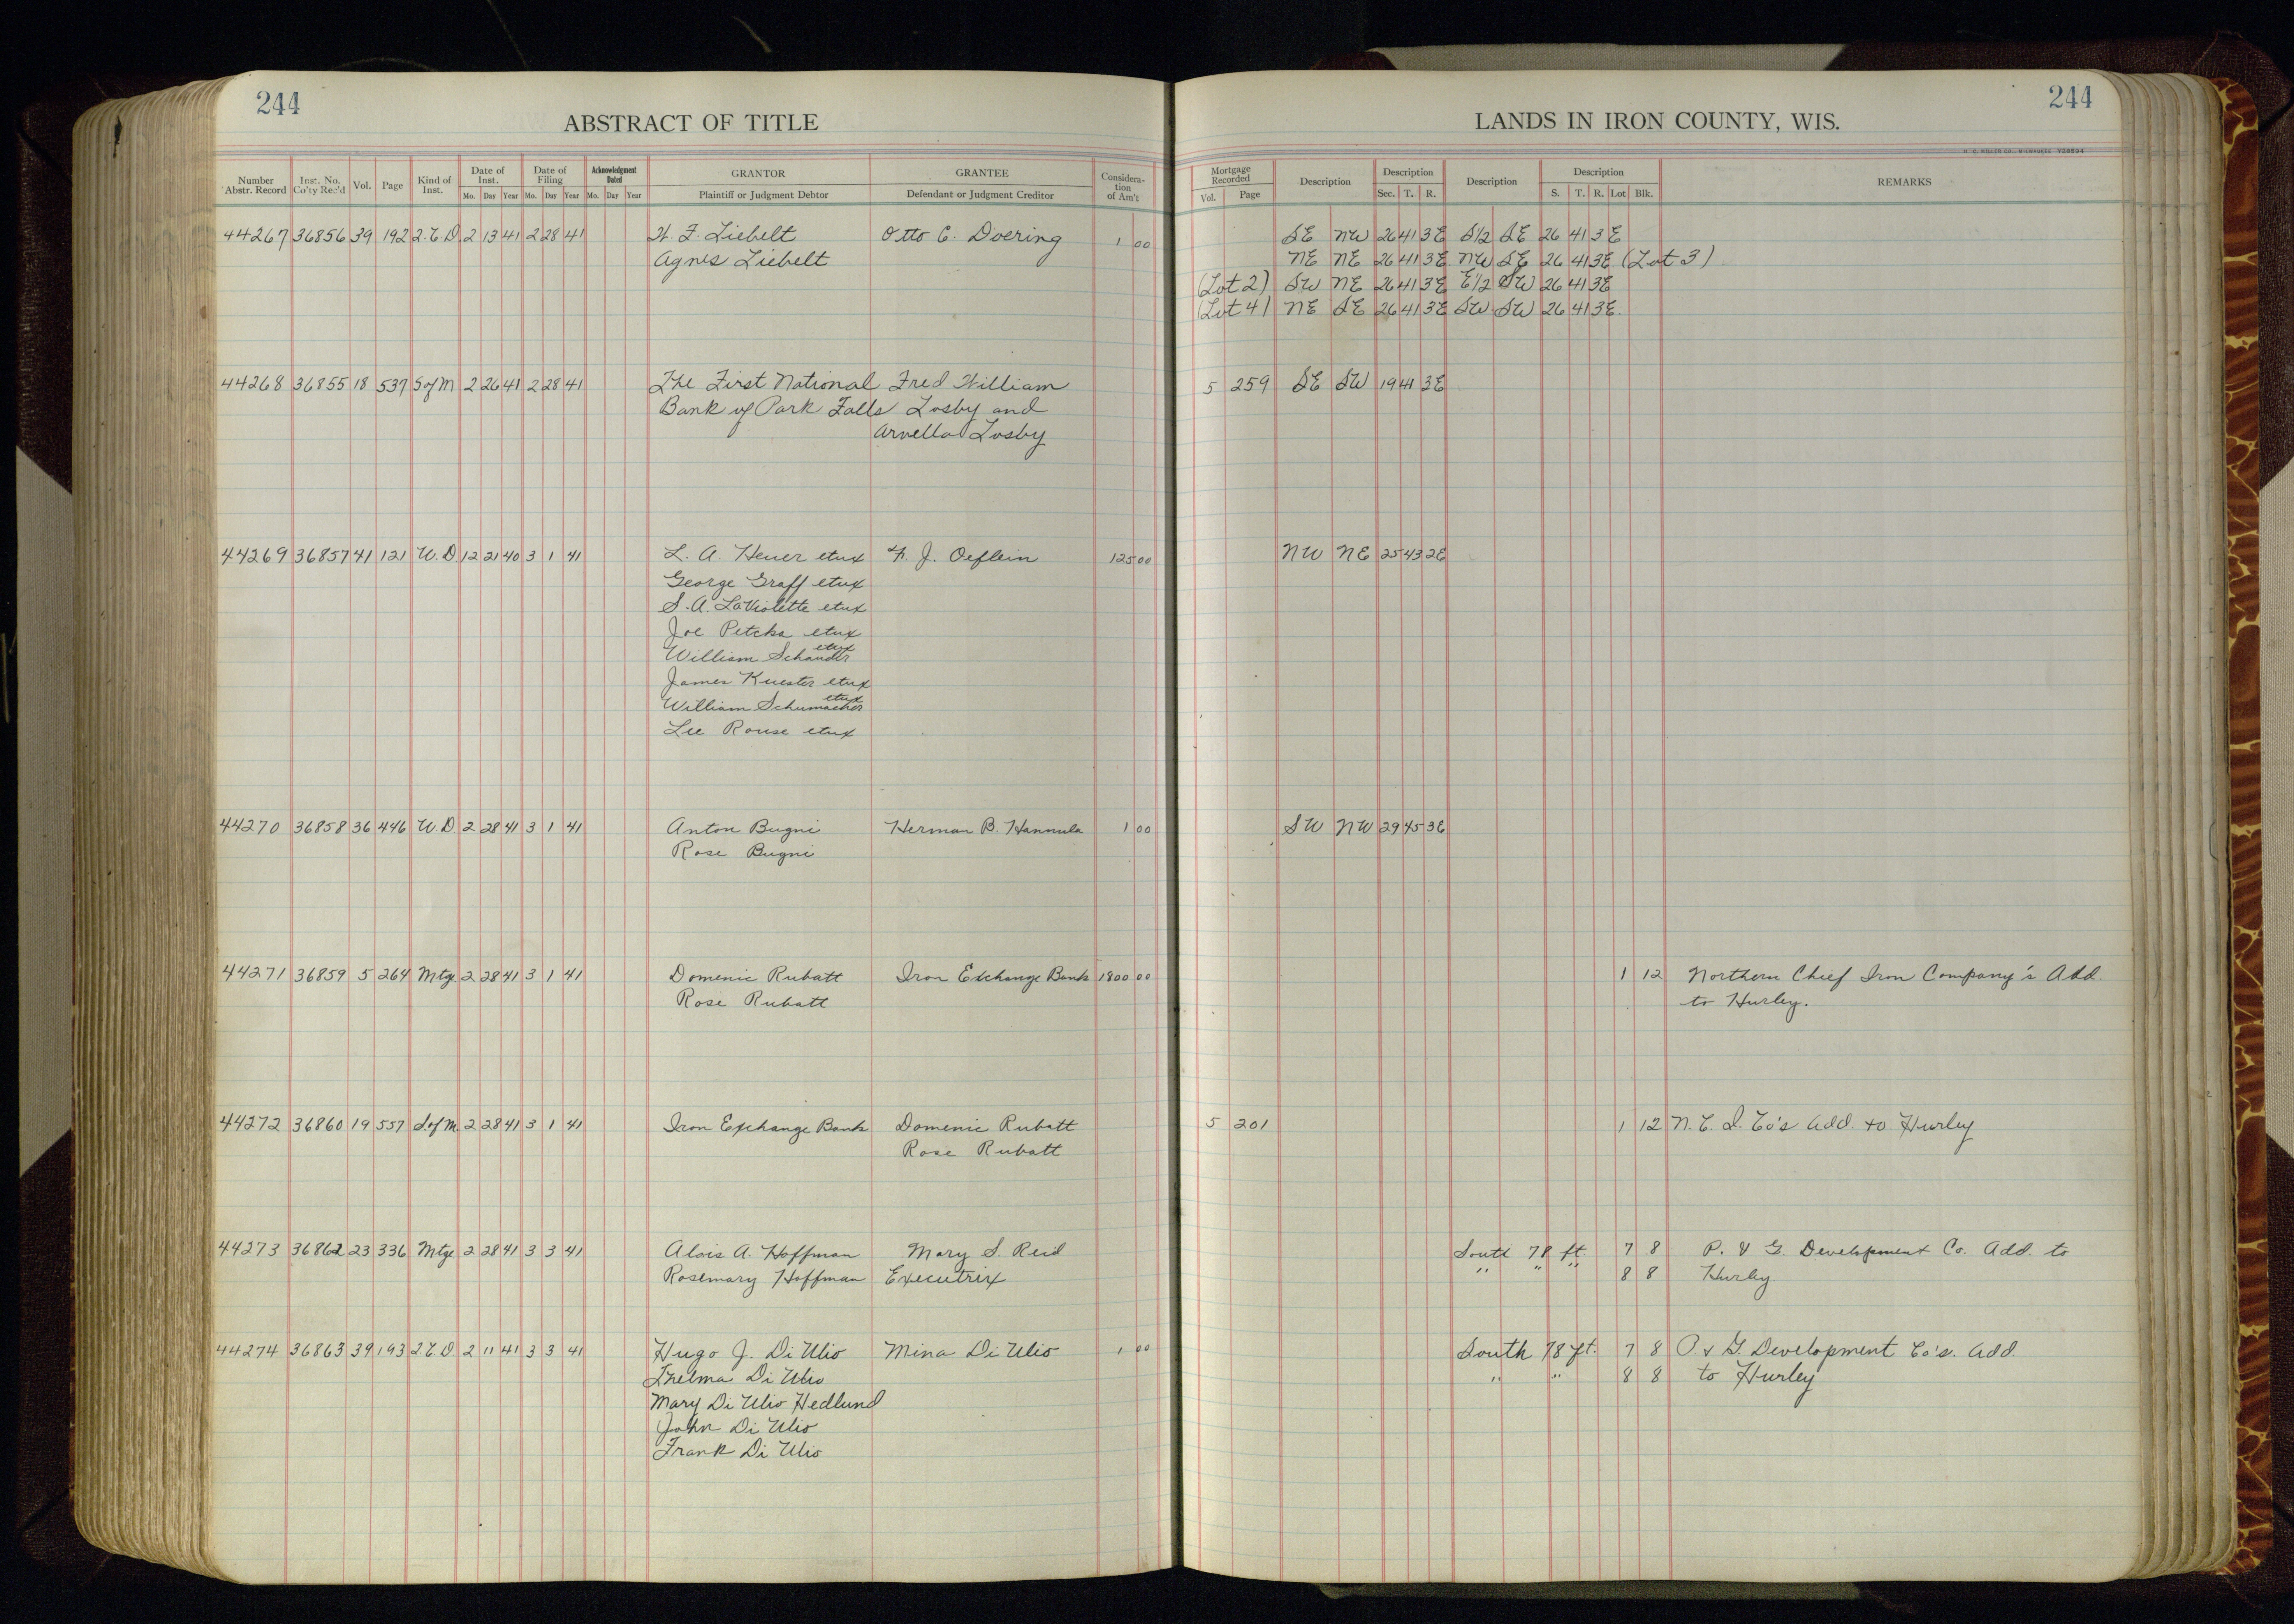 244
ABSTRACT OF TITLE
LANDS IN IRON COUNTY, WIS.
244
Number Abstr. Record | Inst. No. Co'ty Rec'd | Vol. | Page | Kind of Inst. | Date of Inst. Mo. Day Year | Date of Filing Mo. Day Year | Acknowledgment Dated Mo. Day Year | GRANTOR Plaintiff or Judgment Debtor | GRANTEE Defendant or Judgment Creditor | Consideration of Am't | Mortgage Recorded Vol. Page | Description | Description Sec. T. R. | Description | Description S. T. R. Lot Blk. | REMARKS
44267 36856 39 192 Q.C.D. 2 13 41 2 28 41 H. F. Liebelt Otto C. Doering 1 00 SE NW 26 41 3E S1/2 SE 26 41 3E
Agnes Liebelt NE NE 26 41 3E NW SE 26 41 3E (Lot 3)
(Lot 2) SW NE 26 41 3E E1/2 SW 26 41 3E
(Lot 4) NE SE 26 41 3E SW SW 26 41 3E.
44268 36855 18 537 S of M 2 26 41 2 28 41 The First National Fred William 5 259 SE SW 19 41 3E
Bank of Park Falls Losby and
Arvella Losby
44269 36857 41 121 W.D. 12 21 40 3 1 41 L. A. Heuer etux H. J. Oeflein 125 00 NW NE 25 43 2E
George Graff etux
S. A. LaViolette etux
Joe Petcka etux
William Schauder etux
James Kuester etux
William Schumacher etux
Lee Rouse etux
44270 36858 36 446 W.D. 2 28 41 3 1 41 Anton Bugni Herman B. Hannula 1 00 SW NW 29 45 3E
Rose Bugni
44271 36859 5 264 Mtge 2 28 41 3 1 41 Domenic Rubatt Iron Exchange Bank 1800 00 1 12 Northern Chief Iron Company's Add.
Rose Rubatt to Hurley.
44272 36860 19 557 S. of M. 2 28 41 3 1 41 Iron Exchange Bank Domenic Rubatt 5 201 1 12 N. C. I. Co's Add. to Hurley
Rose Rubatt
44273 36862 23 336 Mtge 2 28 41 3 3 41 Alois A. Hoffman Mary S. Reid South 78 ft. 7 8 P. & G. Development Co. Add. to
Rosemary Hoffman Executrix " " " 8 8 Hurley.
44274 36863 39 193 Q.C.D 2 11 41 3 3 41 Hugo J. Di Ulio Mina Di Ulio 1 00 South 78 ft. 7 8 P & G. Development Co's. Add.
Thelma Di Ulio " " 8 8 to Hurley
Mary Di Ulio Hedlund
John Di Ulio
Frank Di Ulio